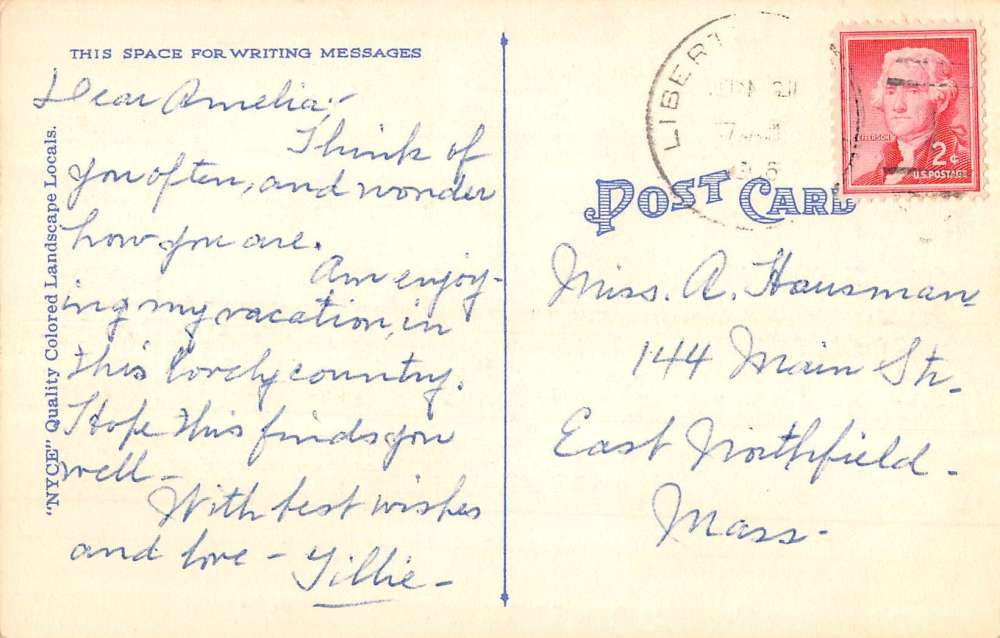 THIS SPACE FOR WRITING MESSAGES
Dear Amelia;-
Think of
you often, and wonder
how you are.
Am enjoy-
ing my vacation, in
this lovely country.
Hope this finds you
well-
With best wishes
and love - Tillie-
"NYCE" Quality Colored Landscape Locals.
LIBERT
JEFFERSON
2¢
U.S. POSTAGE
POST CARD
Miss. A. Hausman
144 Main Str.
East Northfield.
Mass-